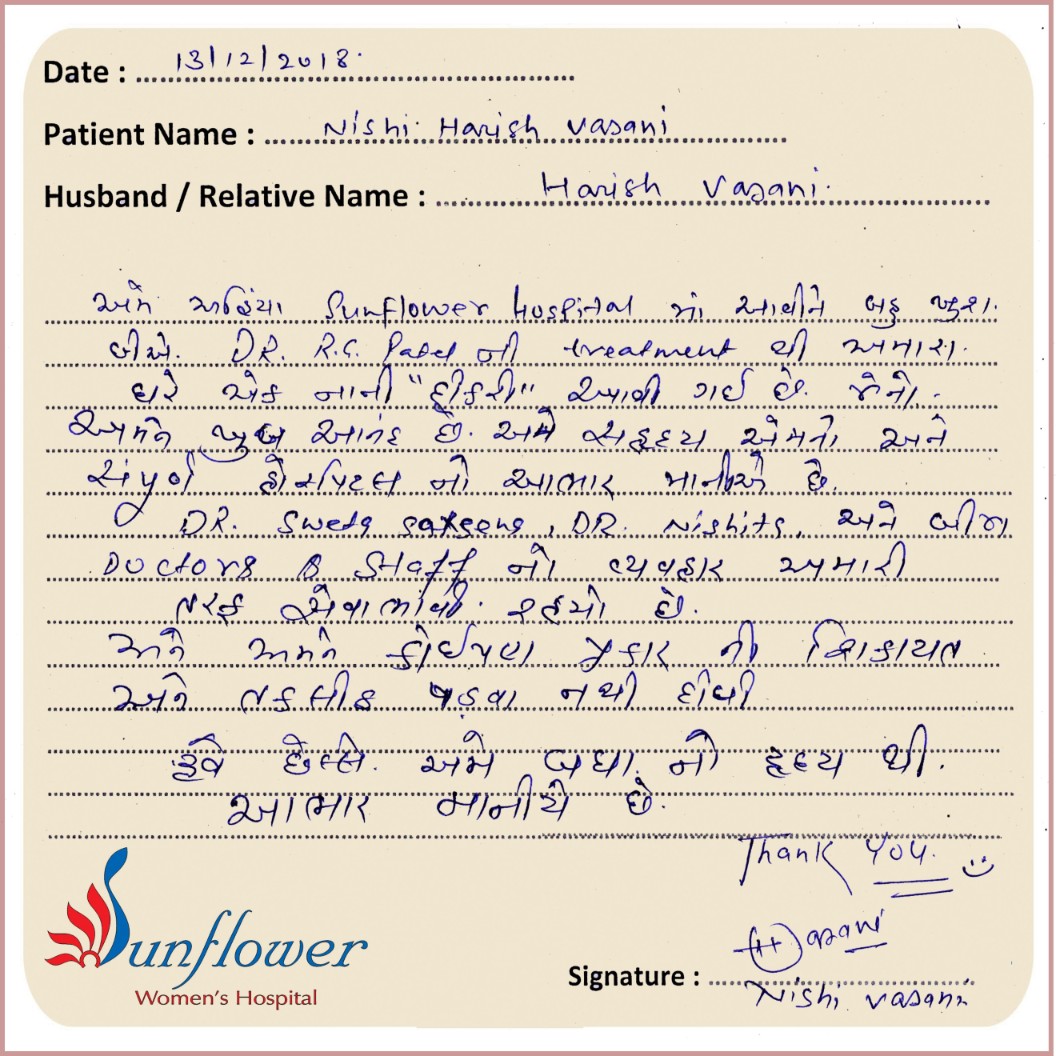 Date : 13/12/2018.
Patient Name : Nishi Harish Vasani
Husband / Relative Name : Harish Vasani.
અમે અહિંયા Sunflower Hospital માં આવીને બહુ ખુશ.
છીએ. DR. R.G. Patel ની treatment થી અમારા.
ઘરે એક નાની "દીકરી" આવી ગઈ છે. જેનો.
અમને ખુબ આનંદ છે. અમે સહૃદય એમનો અને
સંપૂર્ણ હોસ્પિટલ નો આભાર માનીએ છે.
DR. Sweta , DR. Nishita, અને બીજા
Doctors & Staff નો વ્યવહાર અમારી
તરફ સેવાભાવી. રહયો છે.
અને અમને કોઈપણ પ્રકાર ની શિકાયત
અને તકલીફ પડવા નથી દીધી
હવે છેલ્લે. અમે બધા નો હૃદય થી.
આભાર માનીયે છે.
Thank You.
Sunflower
Women's Hospital
Signature : Vasani
Nishi Vasani